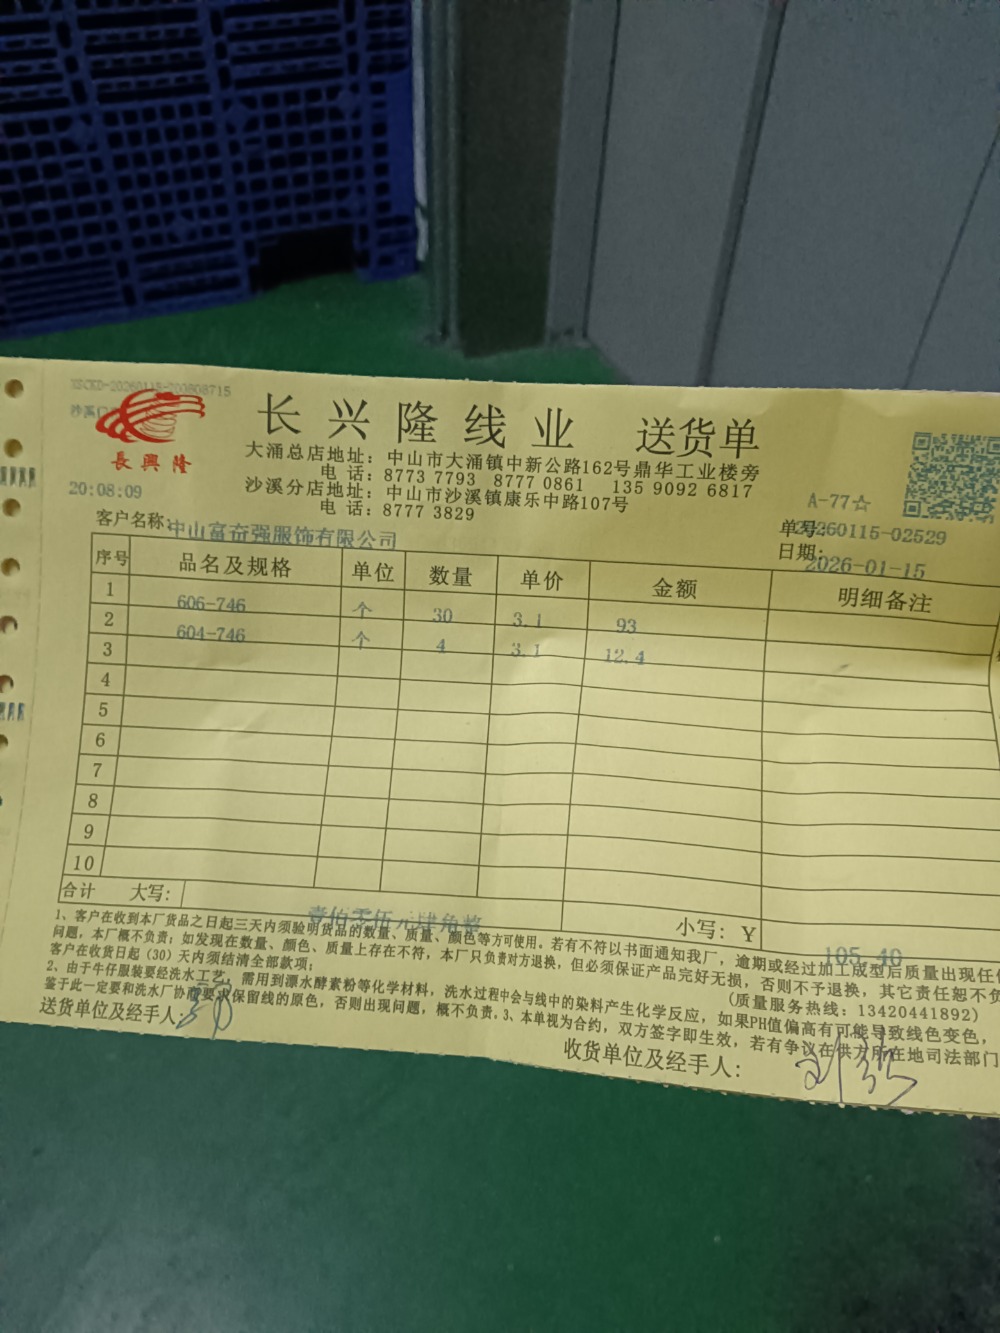 XSCKD-20260115-200808715
沙溪
長興隆
长兴隆线业 送货单
大涌总店地址：中山市大涌镇中新公路162号鼎华工业楼旁
电 话：8773 7793 8777 0861 135 9092 6817
沙溪分店地址：中山市沙溪镇康乐中路107号
电 话：8777 3829
20:08:09
A-77☆
客户名称：中山富奋强服饰有限公司
单号：20260115-02529
日期：2026-01-15
序号 品名及规格 单位 数量 单价 金额 明细备注
1 606-746 个 30 3.1 93
2 604-746 个 4 3.1 12.4
3
4
5
6
7
8
9
10
合计 大写： 壹佰零伍元肆角整 小写：Y 105.40
1、客户在收到本厂货品之日起三天内须验明货品的数量、质量、颜色等方可使用。若有不符以书面通知我厂，逾期或经过加工成型后质量出现任何
问题，本厂概不负责；如发现在数量、颜色、质量上存在不符，本厂只负责对方退换，但必须保证产品完好无损，否则不予退换，其它责任恕不负
客户在收货日起（30）天内须结清全部款项；
（质量服务热线：13420441892）
2、由于牛仔服装要经洗水工艺，需用到漂水酵素粉等化学材料，洗水过程中会与线中的染料产生化学反应，如果PH值偏高有可能导致线色变色，
鉴于此一定要和洗水厂协商要求保留线的原色，否则出现问题，概不负责。3、本单视为合约，双方签字即生效，若有争议在供方所在地司法部门
送货单位及经手人：
收货单位及经手人：